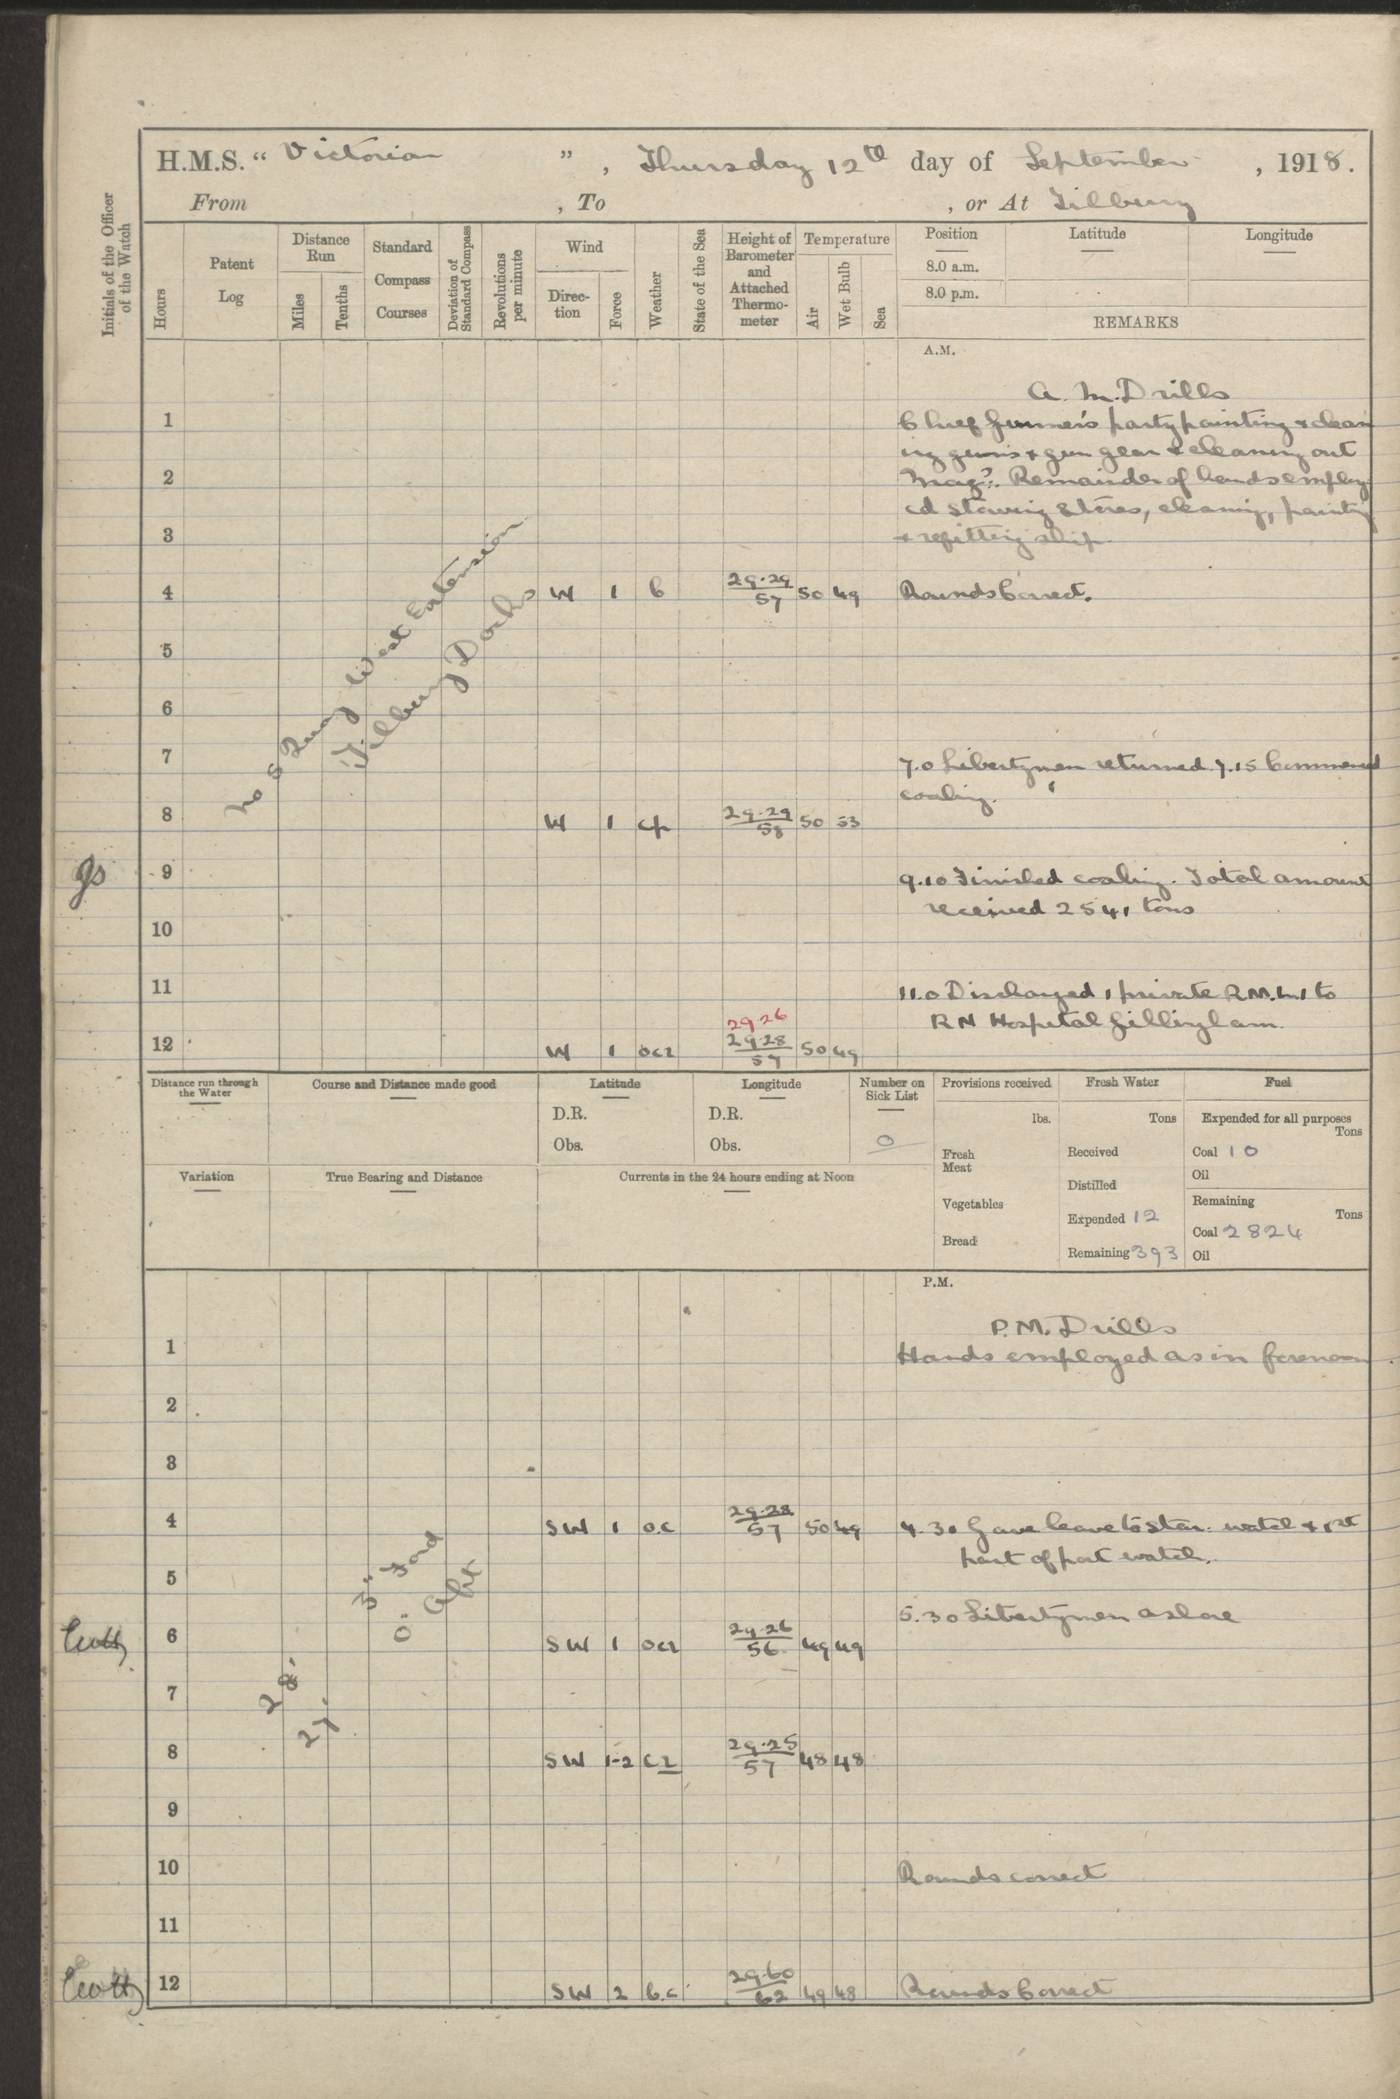 H.M.S. " Victorian ", Thursday 12th day of September, 1918.
From , To , or At Tilbury
Initials of the Officer of the Watch
Hours
Patent Log
Distance Run
Miles
Tenths
Standard Compass Courses
Deviation of Standard Compass
Revolutions per minute
Wind
Direc-tion
Force
Weather
State of the Sea
Height of Barometer and Attached Thermo-meter
Temperature
Air
Wet Bulb
Sea
Position Latitude Longitude
8.0 a.m.
8.0 p.m.
REMARKS
A.M.
A. M. Drills
1 Chief Gunner's party painting & clean
ing guns & gun gear & cleaning out
2 Magz. Remainder of hands employ
ed stowing stores, cleaning, painting
3 & refitting ship.
4 W 1 b 29.29 57 50 49 Rounds Correct.
5
6
No 8 Quay West Extension
Tilbury Docks
7 7.0 Libertymen returned. 7.15 Commenced
coaling.
8 W 1 cp 29.29 58 50 53
9 9.10 Finished coaling. Total amount
received 2541 tons
10
11 11.0 Discharged 1 private R.M.L.I to
RN Hospital Gillingham.
29.26
12 W 1 ocr 29.28 57 50 49
Distance run through the Water
Course and Distance made good
Latitude
D.R.
Obs.
Longitude
D.R.
Obs.
Number on Sick List
0
Variation
True Bearing and Distance
Currents in the 24 hours ending at Noon
Provisions received
lbs.
Fresh Meat
Vegetables
Bread
Fresh Water
Tons
Received
Distilled
Expended 12
Remaining 393
Fuel
Expended for all purposes
Tons
Coal 10
Oil
Remaining
Tons
Coal 2824
Oil
P.M.
P.M. Drills
1 Hands employed as in forenoon
2
3
4 SW 1 o.c 29.28 57 50 49 4.30 Gave leave to Star. watch & 1st
part of port watch.
5
5.30 Libertymen ashore
6 SW 1 ocr 29.26 56 49 49
28' 3" Ford
27' 0" Aft
7
8 SW 1-2 cr 29.25 57 48 48
9
10 Rounds correct
11
12 SW 2 b.c 29.60 62 49 48 Rounds Correct